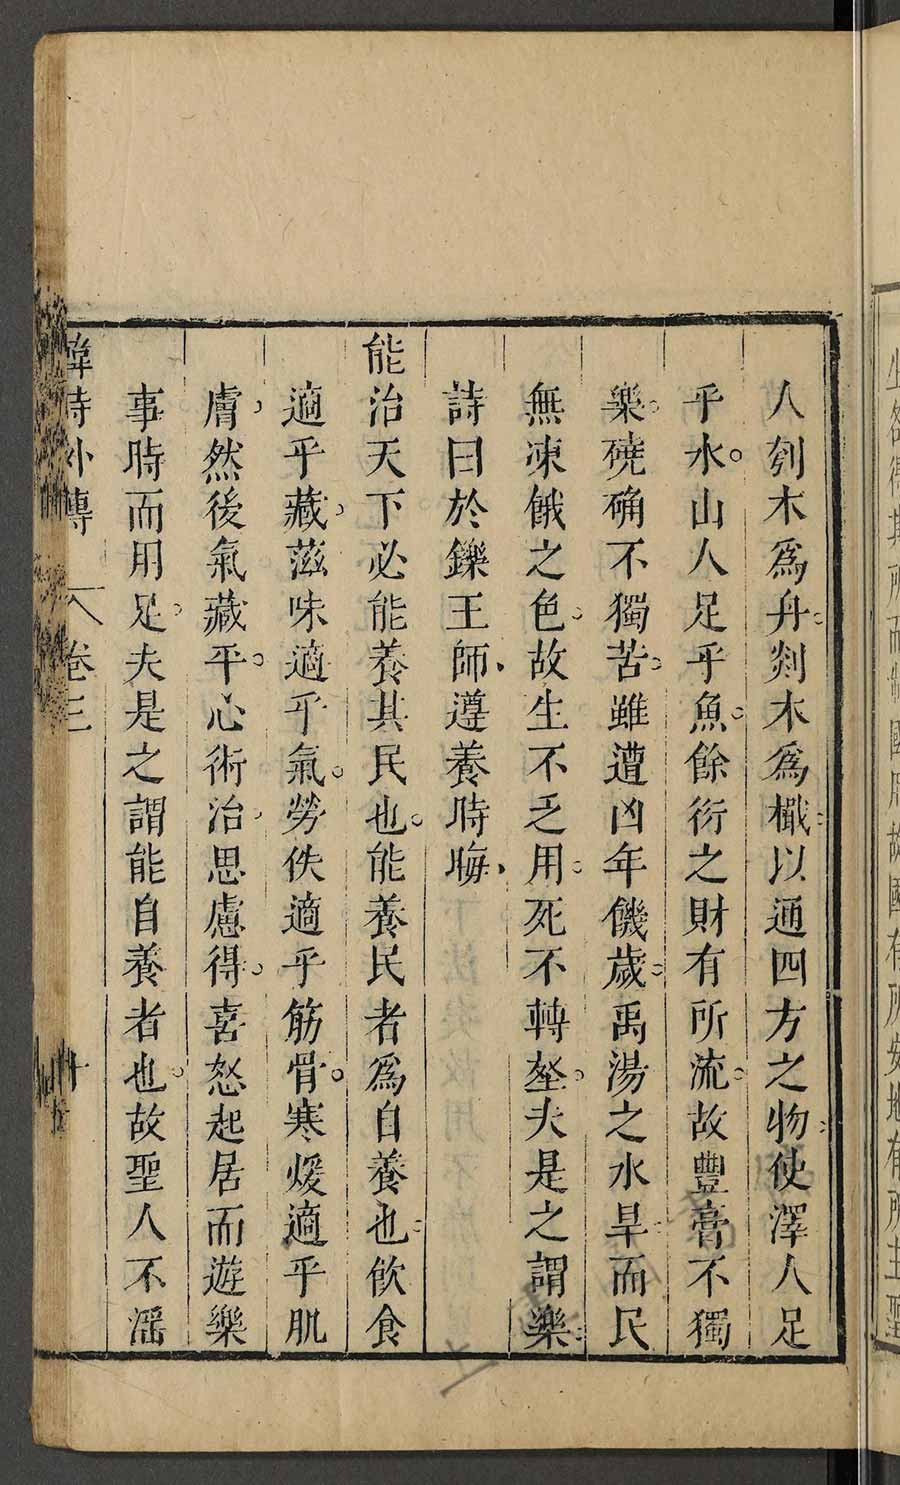 人刳木為舟剡木為檝以通四方之物使澤人足
乎水山人足乎魚餘衍之財有所流故豐膏不獨
樂磽确不獨苦雖遭凶年饑歲禹湯之水旱而民
無凍餓之色故生不乏用死不轉壑夫是之謂樂
詩曰於鑠王師遵養時晦
能治天下必能養其民也能養民者為自養也飲食
適乎藏滋味適乎氣勞佚適乎筋骨寒煖適乎肌
膚然後氣藏平心術治思慮得喜怒起居而遊樂
事時而用足夫是之謂能自養者也故聖人不滛
韓詩外傳 卷三 十